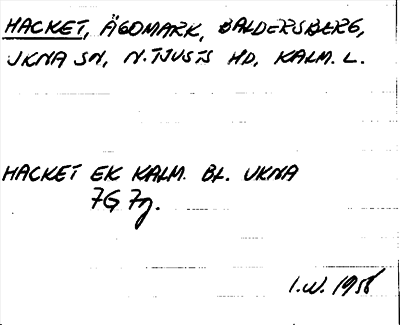 HACKET, ÄGOMARK, BALDERSBERG,
UKNA SN, N. TJUSTS HD, KALM. L.
HACKET EK KALM. BL. UKNA
7G 7g.
I.W. 1958